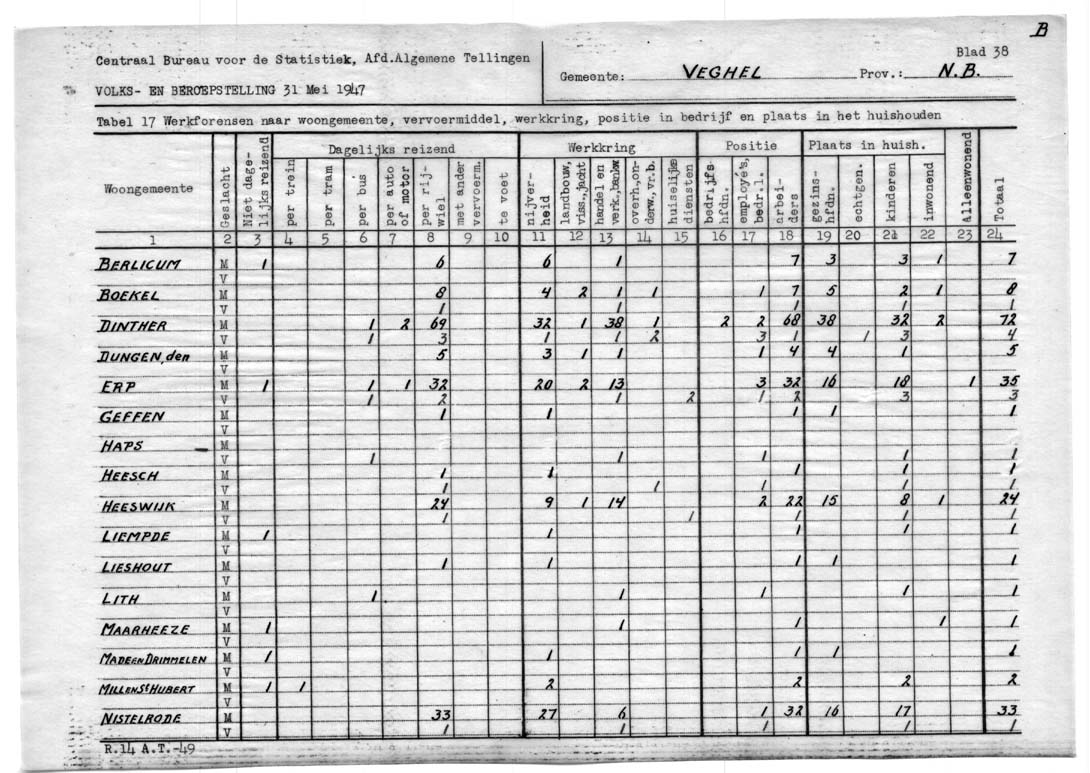 B
Centraal Bureau voor de Statistiek, Afd.Algemene Tellingen
VOLKS- EN BEROEPSTELLING 31 Mei 1947
Gemeente: VEGHEL Prov.: N.B.
Blad 38
Tabel 17 Werkforensen naar woongemeente, vervoermiddel, werkkring, positie in bedrijf en plaats in het huishouden
Woongemeente Geslacht Niet dage-lijks reizend Dagelijks reizend Werkkring Positie Plaats in huish. Alleenwonend Totaal
per trein per tram per bus per auto of motor per rij-wiel met ander vervoerm. te voet nijver-heid landbouw, viss.,jacht handel en verk., overh.,on-derw.,vr.b. huiselijke diensten bedrijfs-hfdn. employé's, bedr.l. arbei-ders gezins-hfdn. echtgen. kinderen inwonend
1 2 3 4 5 6 7 8 9 10 11 12 13 14 15 16 17 18 19 20 21 22 23 24
BERLICUM M 1 6 6 1 7 3 3 1 7
V
BOEKEL M 8 4 2 1 1 1 7 5 2 1 8
V 1 1 1 1 1
DINTHER M 1 2 69 32 1 38 1 2 2 68 38 32 2 72
V 1 3 1 1 2 3 1 1 3 4
DUNGEN, den M 5 3 1 1 1 4 4 1 5
V
ERP M 1 1 1 32 20 2 13 3 32 16 18 1 35
V 1 2 1 2 1 2 3 3
GEFFEN M 1 1 1 1 1
V
HAPS M
V 1 1 1 1 1
HEESCH M 1 1 1 1 1
V 1 1 1 1 1
HEESWIJK M 24 9 1 14 2 22 15 8 1 24
V 1 1 1 1 1
LIEMPDE M 1 1 1 1 1
V
LIESHOUT M 1 1 1 1 1
V
LITH M 1 1 1 1 1
V
MAARHEEZE M 1 1 1 1 1
V
MADE EN DRIMMELEN M 1 1 1 1 1
V
MILL EN St HUBERT M 1 1 2 2 2 2
V
NISTELRODE M 33 27 6 1 32 16 17 33
V 1 1 1 1 1
R.14 A.T.-49